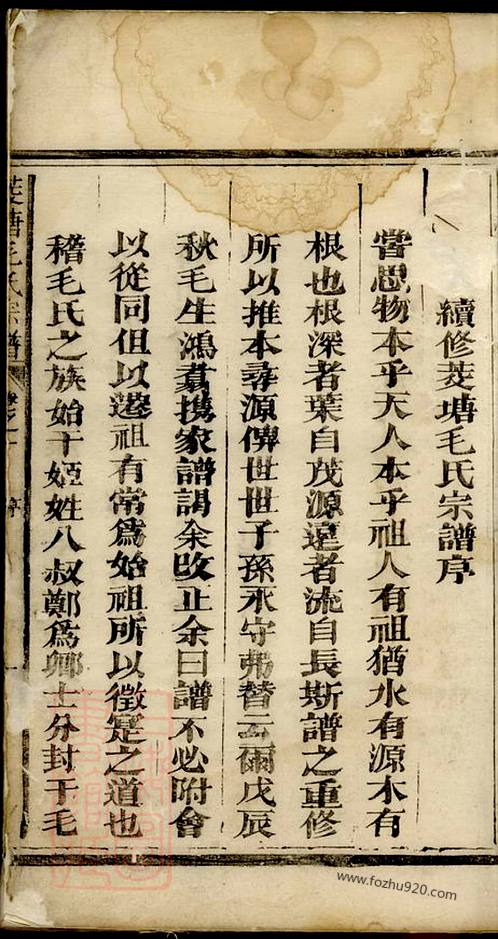 續修茭塘毛氏宗譜序
嘗思物本乎天人本乎祖人有祖猶水有源木有
根也根深者葉自茂源遠者流自長斯譜之重修
所以推本尋源俾世世子孫永守弗替云爾戊辰
秋毛生鴻翥攜家譜謁余改正余曰譜不必附會
以從同但以遷祖有常為始祖所以徵寔之道也
稽毛氏之族始于姬姓八叔鄭為卿士分封于毛
茭塘毛氏宗譜
序
www.fozhu920.com